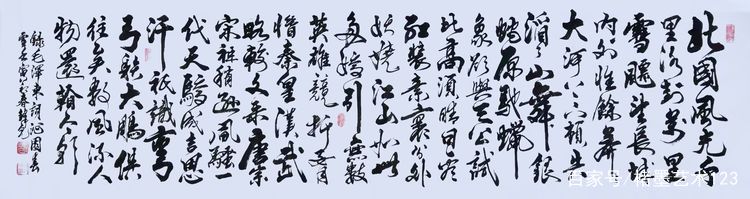 北國風光千
里冰封万里
雪飄望長城
内外惟餘莽
大河上下頓失
滔々山舞銀
蛇原馳蠟
象欲與天公試
比高須晴日看
紅裝素裹分外
妖嬈江山如此
多嬌引無數
英雄競折腰
惜秦皇漢武
略輸文采唐宗
宋祖稍遜風騷一
代天驕成吉思
汗祇識彎
弓射大鵰俱
往矣數風流人
物還看今朝
錄毛澤東詞沁園春
雪寅年春
百家号/墨艺术123